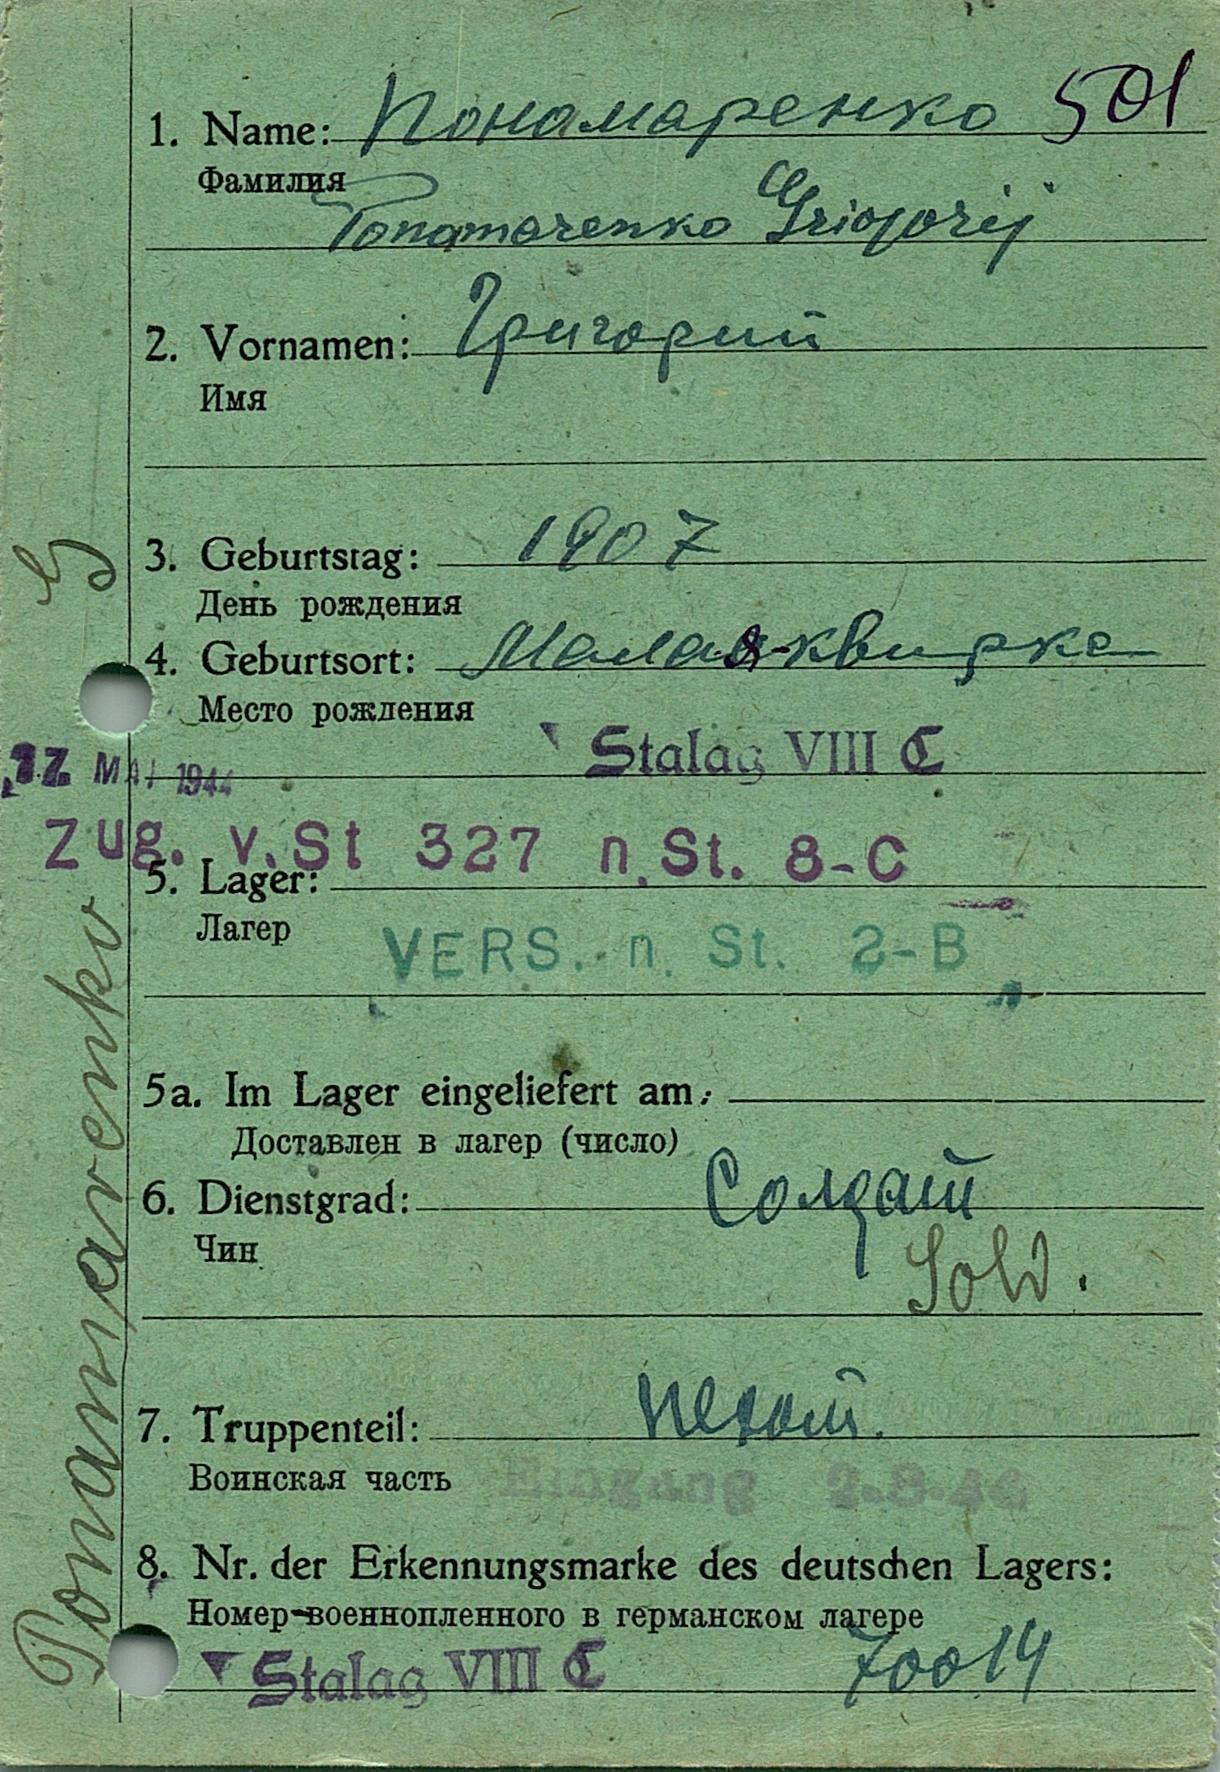 1. Name: Пономаренко 501
Фамилия
Ponomarenko Grigorij
2. Vornamen: Григорий
Имя
3. Geburtstag: 1907
День рождения
4. Geburtsort: Малая-квирка
Место рождения
Stalag VIII C
17. MAI 1944
Zug. v. St 327 n. St. 8-C
5. Lager:
Лагер
VERS. n. St. 2-B
5a. Im Lager eingeliefert am:
Доставлен в лагер (число)
6. Dienstgrad: Солдат
Чин
Sold.
7. Truppenteil: пехот.
Воинская часть
Eingang
8. Nr. der Erkennungsmarke des deutschen Lagers:
Номер-военнопленного в германском лагере
Stalag VIII C 70014
Ponamarenko G